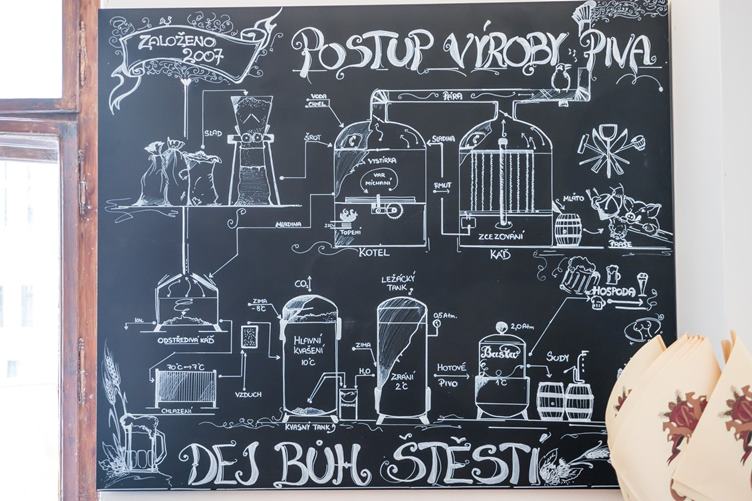 ZALOŽENO
2007
POSTUP VÝROBY PIVA
VODA
PÁRA
SLAD
ŠROT
SLADINA
VYSTÍRKA
VAR
MÍCHÁNÍ
RMUT
MLÁTO
MLADINA
TOPENÍ
ZCEZOVÁNÍ
PRASE
KOTEL
KÁĎ
CO₂
LEŽÁCKÝ
TANK
HOSPODA
ZIMA
-8°C
0,5 Atm.
KAL
HLAVNÍ
KVAŠENÍ
10°C
2,0 Atm
ODSTŘEDIVÁ KÁĎ
ZIMA
Bašta
SUDY
70°C → 7°C
H₂O
ZRÁNÍ
2°C
HOTOVÉ
PIVO
1°C
VZDUCH
CHLAZENÍ
KVASNÝ TANK
DEJ BŮH ŠTĚSTÍ